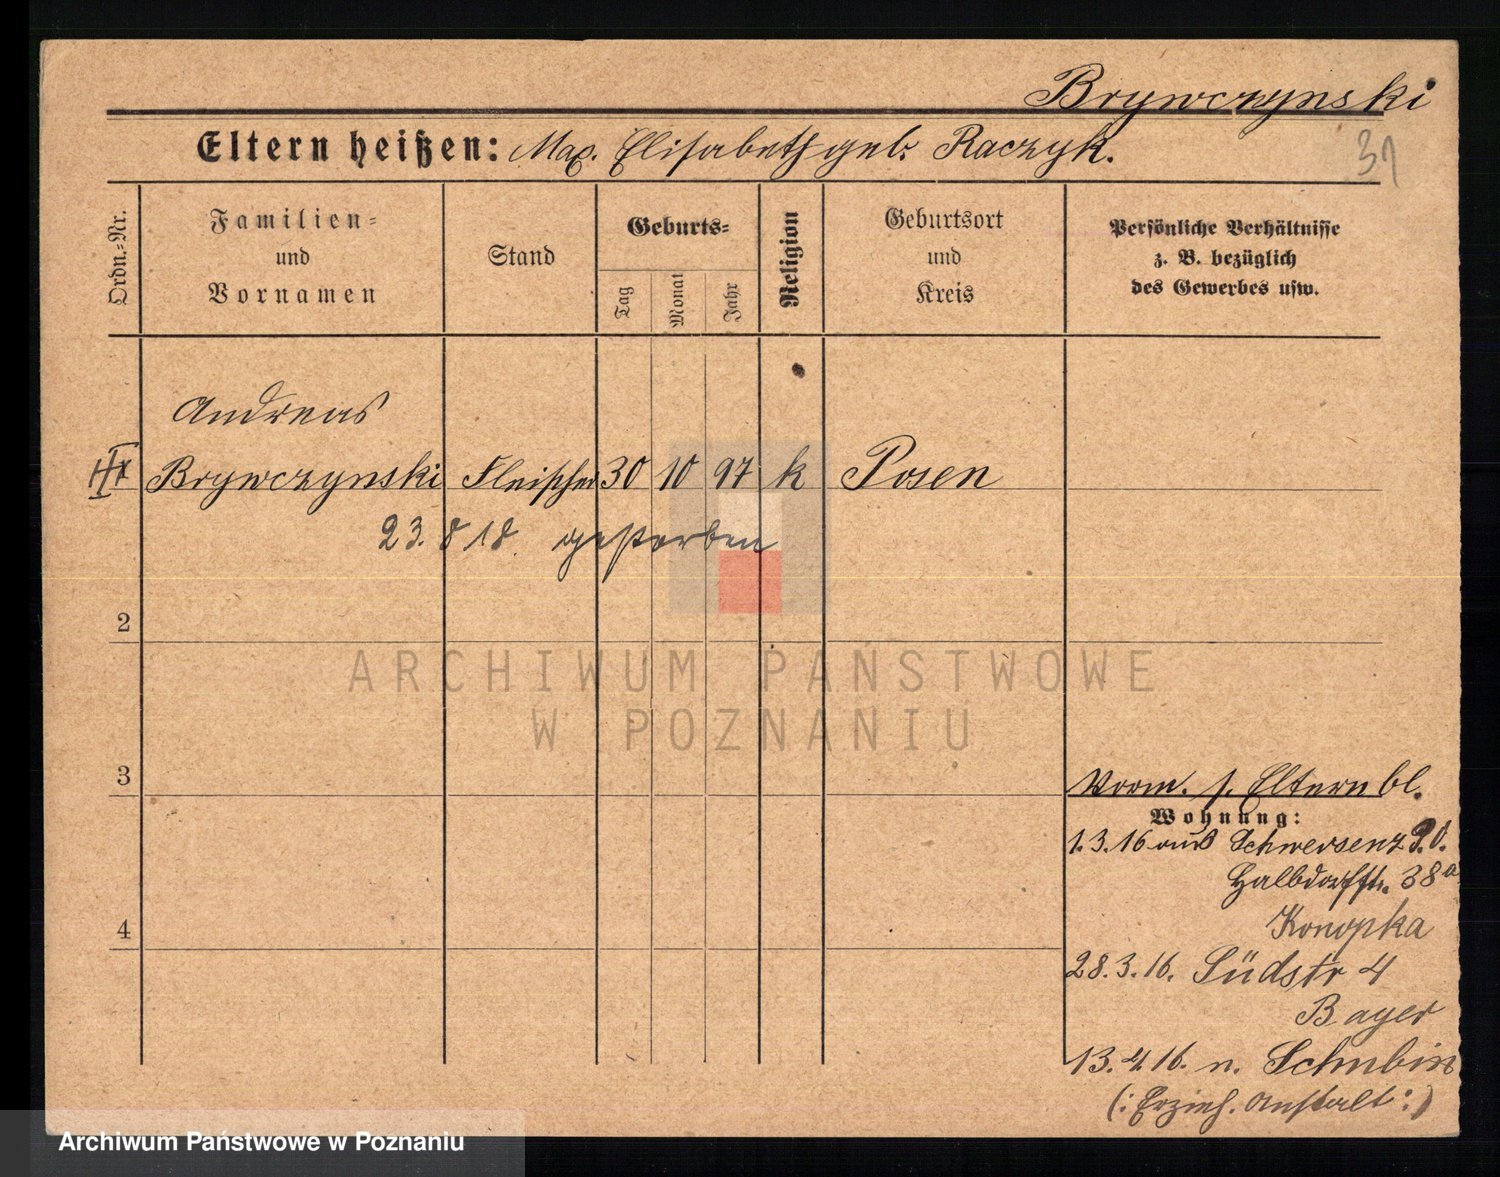 Brywczynski
Eltern heißen: Max. Elisabeth geb. Raczyk.
31
Ordn.-Nr.
Familien- und Vornamen
Stand
Geburts-
Tag
Monat
Jahr
Religion
Geburtsort und Kreis
Persönliche Verhältnisse
z. B. bezüglich
des Gewerbes usw.
Andreas
Brywczynski Fleischer 30 10 97 k Posen
23. 8 18. gestorben
2
3
4
Vorm. s. Eltern bl.
Wohnung:
1.3.16 aus Schwersenz
Halbdorfstr. 38a
Konopka
28.3.16. Südstr 4
Bayer
13.4.16. n. Schubin
(: Erzieh. Anstalt :)
ARCHIWUM PAŃSTWOWE
W POZNANIU
Archiwum Państwowe w Poznaniu